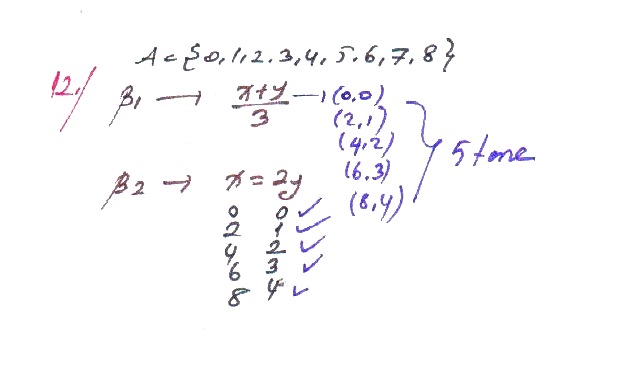 A = {0,1,2.3,4,5.6,7,8}
12./
β₁ → x+y/3 → (0,0)
(2,1)
(4,2)
(6,3)
(8,4)
5 tane
β₂ → x = 2y
0 0 ✓
2 1 ✓
4 2 ✓
6 3 ✓
8 4 ✓